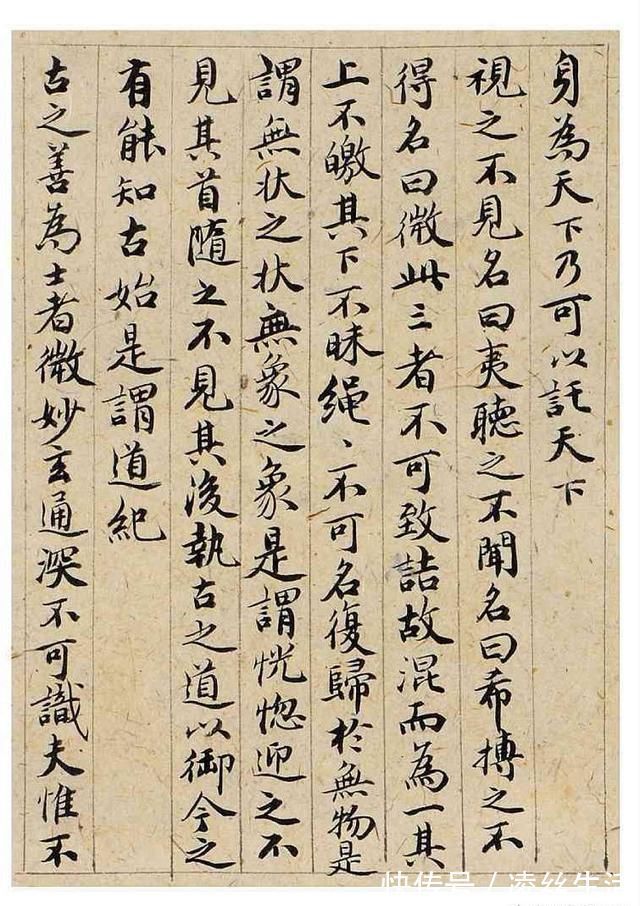 身為天下乃可以託天下
視之不見名曰夷聽之不聞名曰希搏之不
得名曰微此三者不可致詰故混而為一其
上不皦其下不昧繩〻不可名復歸於無物是
謂無狀之狀無象之象是謂恍惚迎之不
見其首隨之不見其後執古之道以御今之
有能知古始是謂道紀
古之善為士者微妙玄通深不可識夫惟不
快传号/凌丝生活